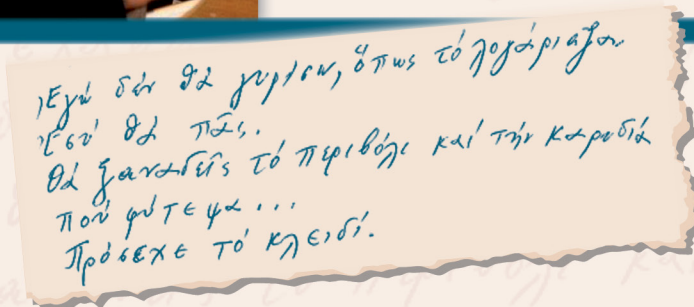 Ἐγώ δέν θά γυρίσω, ὅπως τό λογάριαζα.
Ἐσύ θά πᾶς.
Θά ξαναδεῖς τό περιβόλι καί τήν καρυδιά
πού φύτεψα...
Πρόσεχε τό κλειδί.